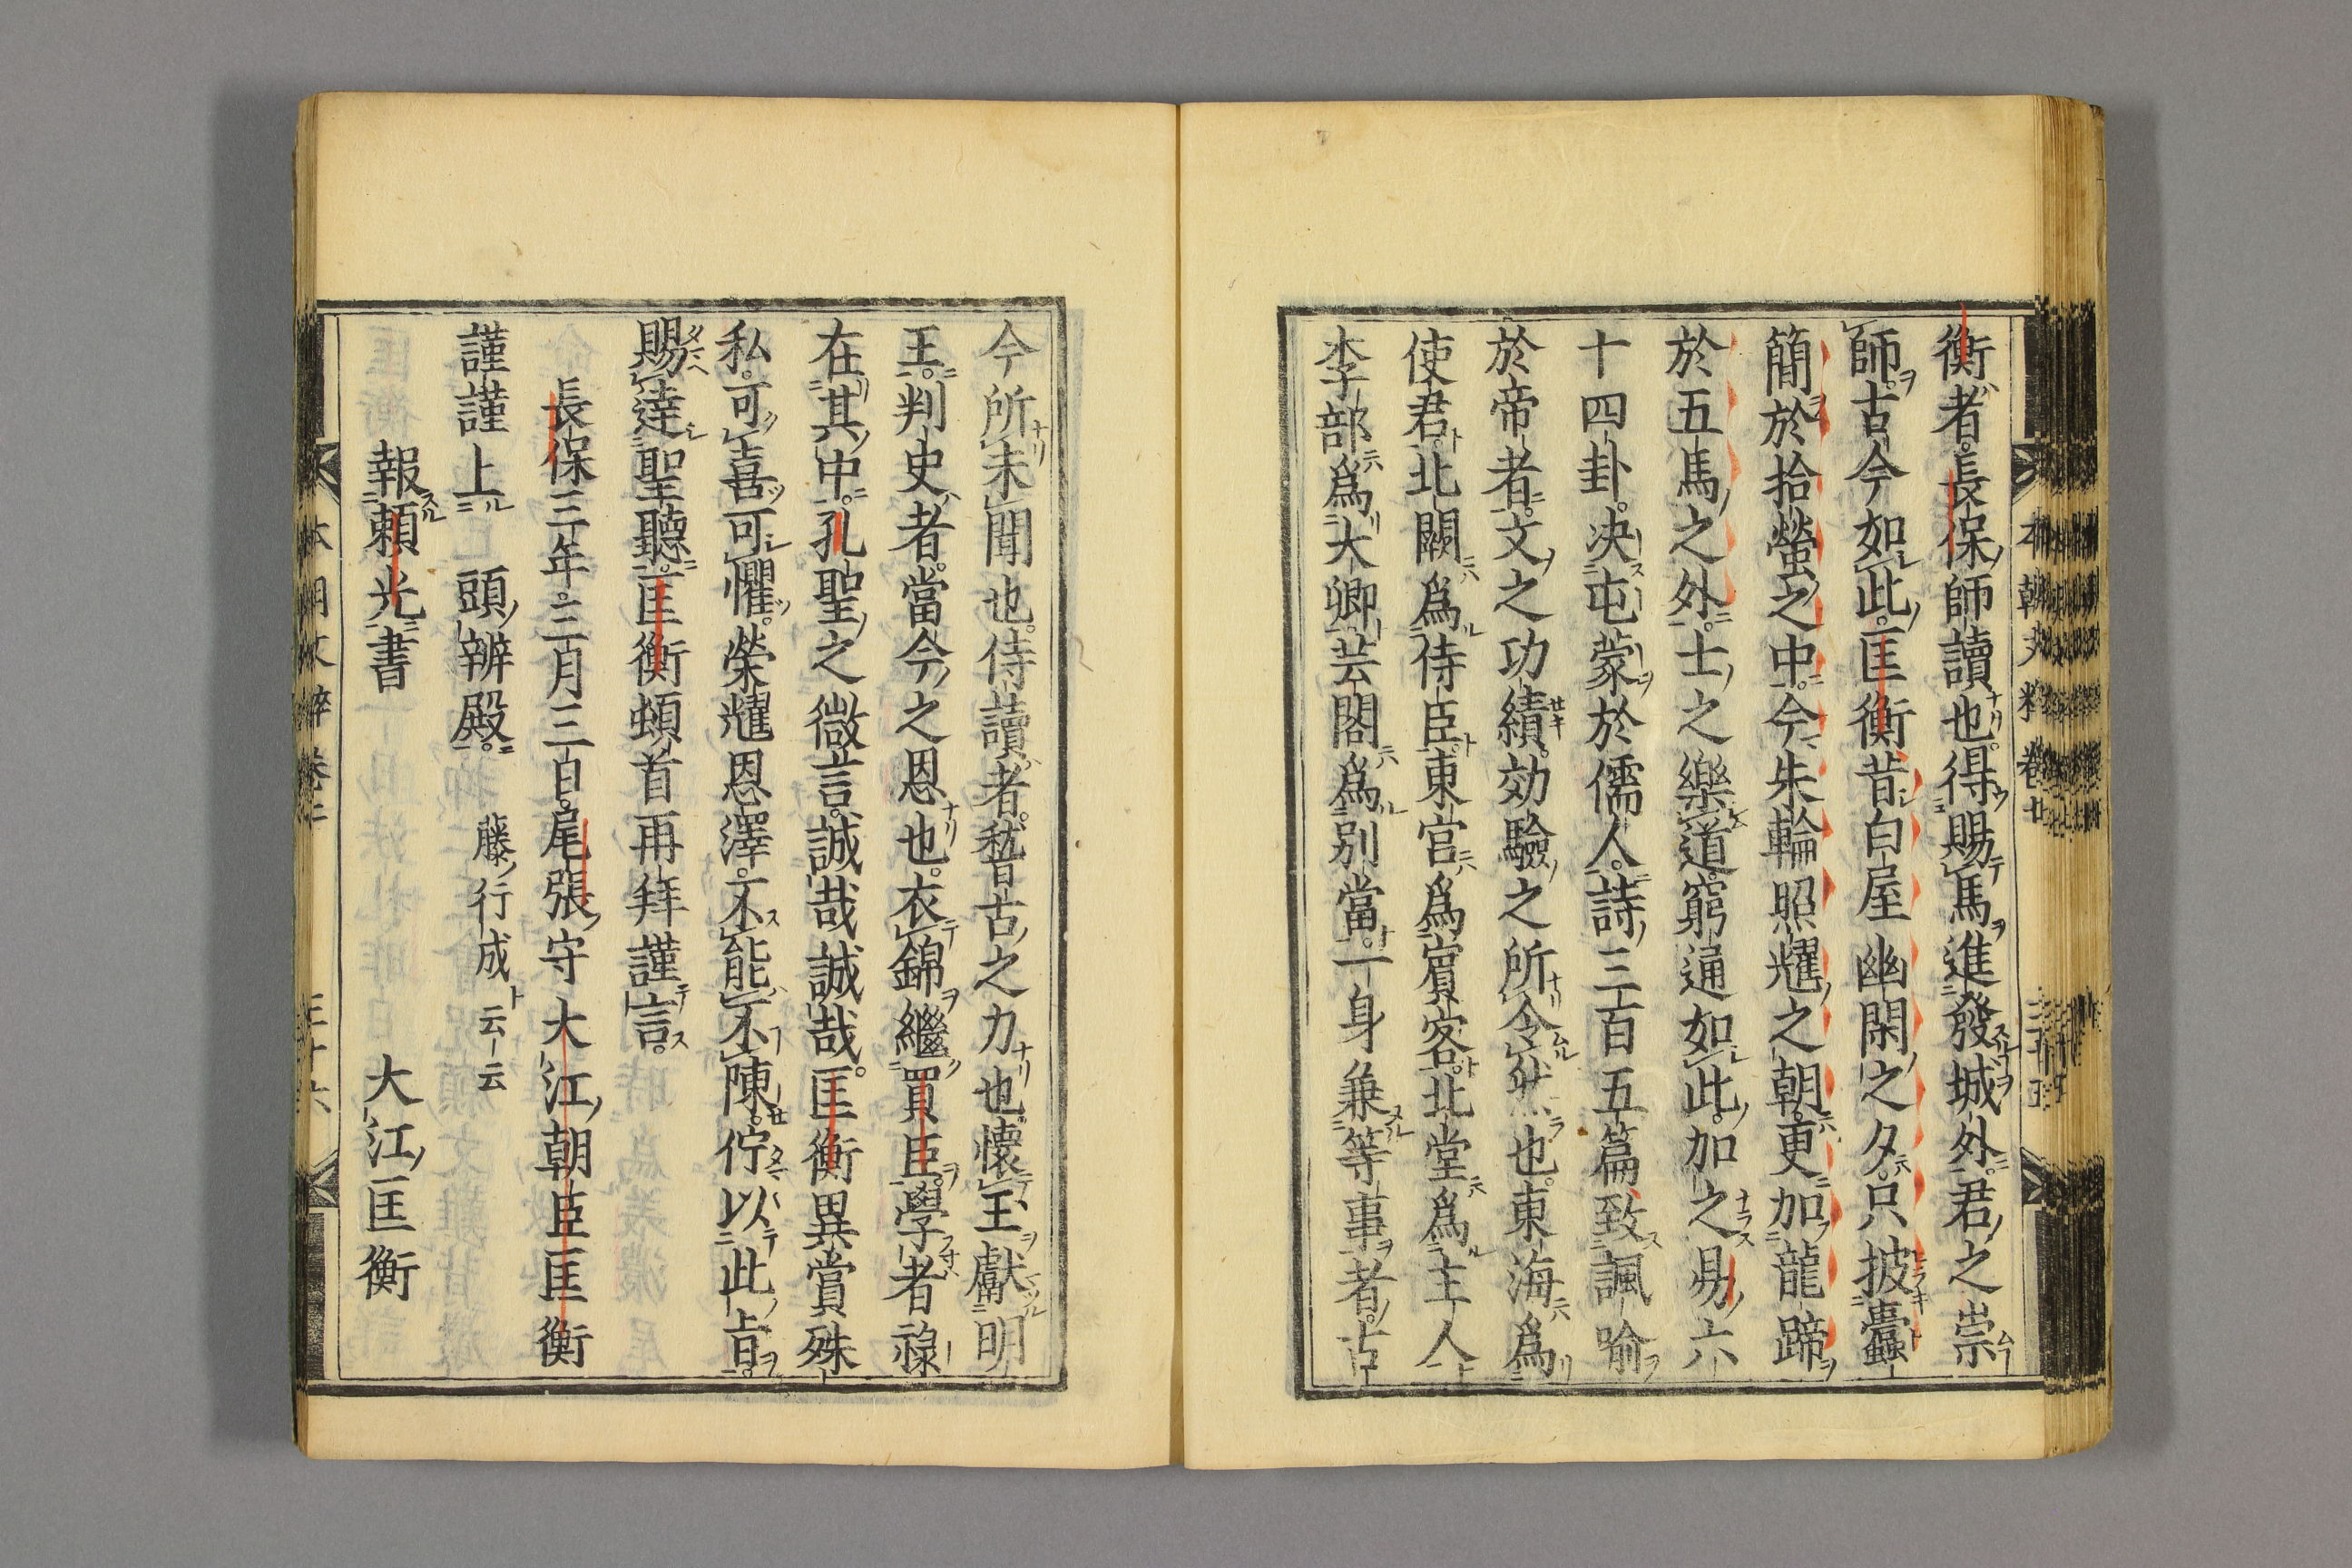 衡者長保師讀也得賜馬進發城外君之崇
師古今如此匡衡昔白屋幽閑之夕只披蠹
簡於拾螢之中今朱輪照耀之朝更加龍蹄
於五馬之外士之樂道窮通如此加之易六
十四卦决屯蒙於儒人詩三百五篇致諷喻
於帝者文之功績効驗之所令然也東海為
使君北闕為侍臣東宮為賓客北堂為主人
李部為大卿芸閣為別當一身兼等事者古
今所未聞也侍讀者嵆古之力也懷玉獻明
王判史者當今之恩也衣錦繼買臣學者祿
在其中孔聖之微言誠哉誠哉匡衡異賞殊
私可喜可懼榮耀恩澤不能不陳佇以此旨
賜達聖聽匡衡頓首再拜謹言
長保三年三月三日尾張守大江朝臣匡衡
謹謹上 頭辨殿 藤行成云云
報賴光書 大江匡衡